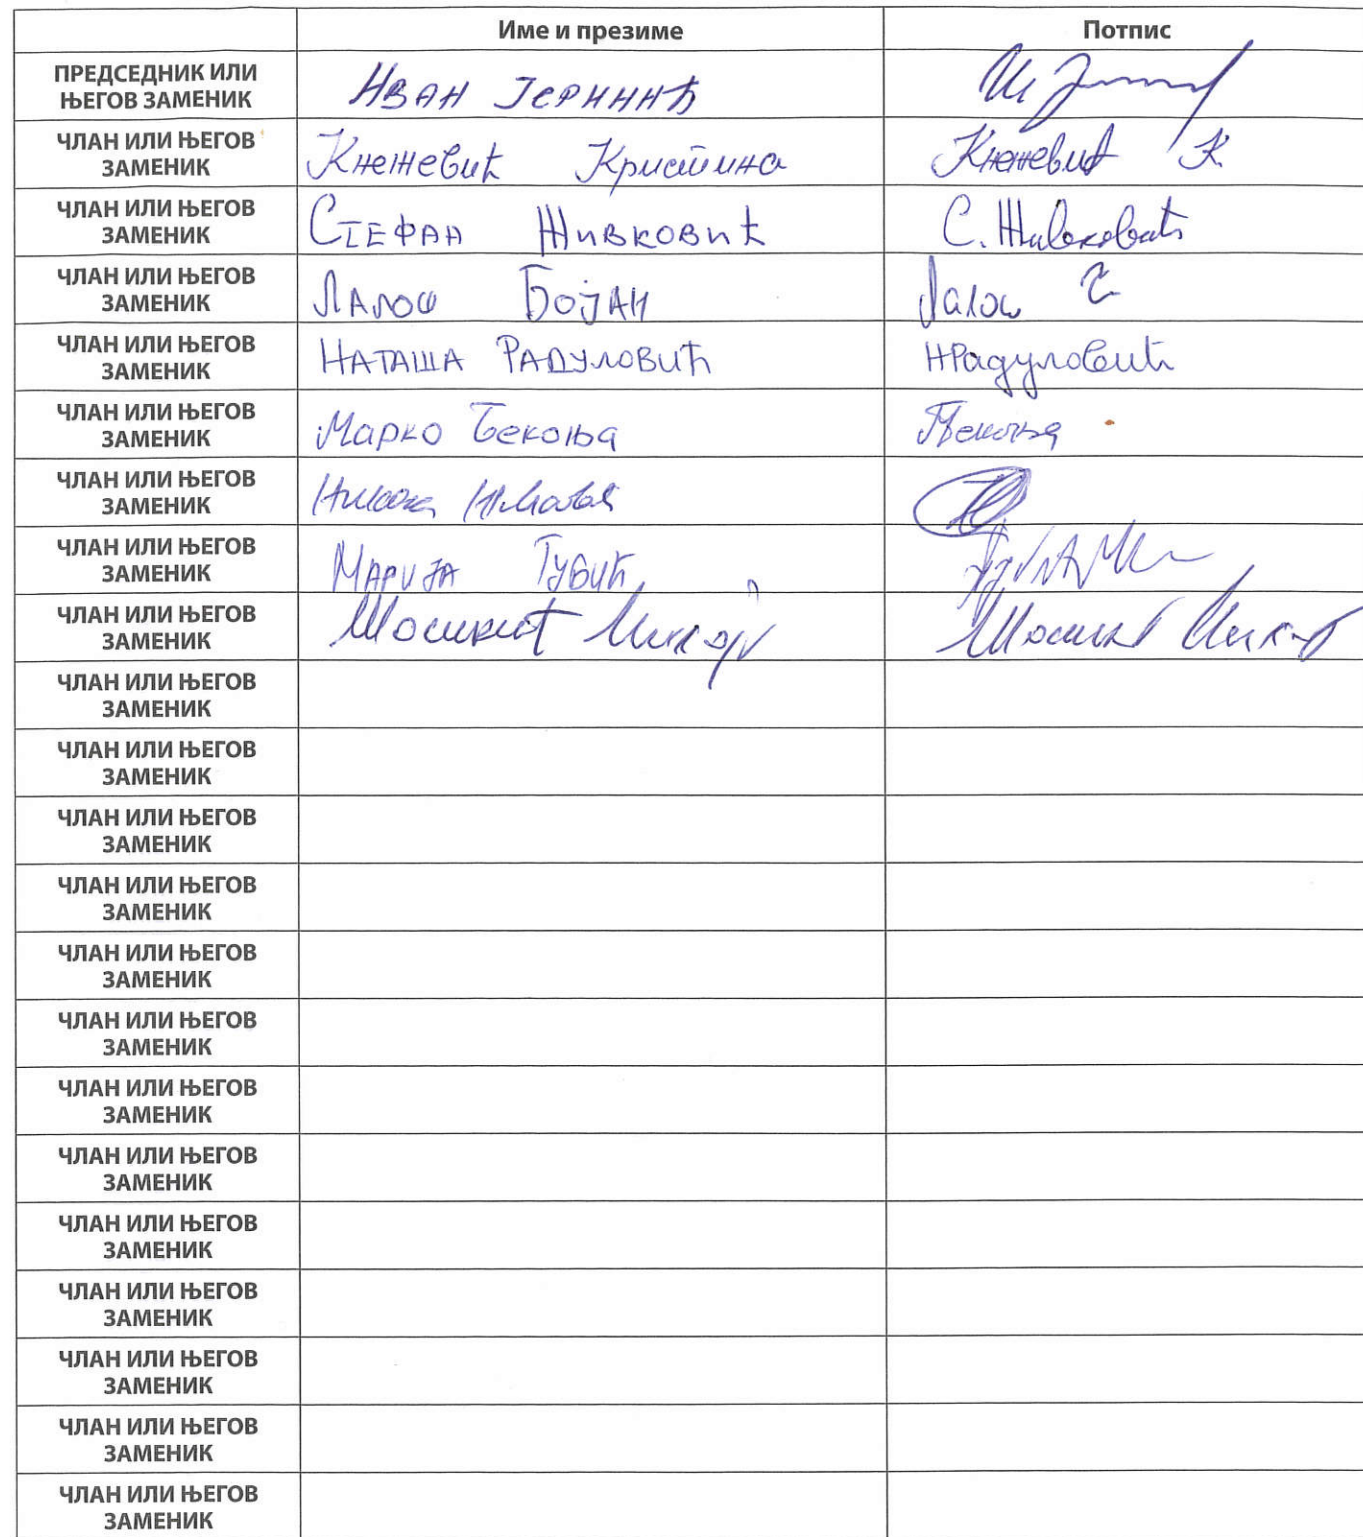 Име и презиме Потпис
ПРЕДСЕДНИК ИЛИ
ЊЕГОВ ЗАМЕНИК
ИВАН ЈЕРИНИЋ
ЧЛАН ИЛИ ЊЕГОВ
ЗАМЕНИК
Кнежевић Кристина Кнежевић К
ЧЛАН ИЛИ ЊЕГОВ
ЗАМЕНИК
СТЕФАН ЖИВКОВИЋ С. Живковић
ЧЛАН ИЛИ ЊЕГОВ
ЗАМЕНИК
ЛАЛОШ БОЈАН Лалош Б
ЧЛАН ИЛИ ЊЕГОВ
ЗАМЕНИК
НАТАША РАДУЛОВИЋ НРадуловић
ЧЛАН ИЛИ ЊЕГОВ
ЗАМЕНИК
Марко Ђекоња МЂекоња
ЧЛАН ИЛИ ЊЕГОВ
ЗАМЕНИК
ЧЛАН ИЛИ ЊЕГОВ
ЗАМЕНИК
МАРИЈА ГУБИЋ
ЧЛАН ИЛИ ЊЕГОВ
ЗАМЕНИК
ЧЛАН ИЛИ ЊЕГОВ
ЗАМЕНИК
ЧЛАН ИЛИ ЊЕГОВ
ЗАМЕНИК
ЧЛАН ИЛИ ЊЕГОВ
ЗАМЕНИК
ЧЛАН ИЛИ ЊЕГОВ
ЗАМЕНИК
ЧЛАН ИЛИ ЊЕГОВ
ЗАМЕНИК
ЧЛАН ИЛИ ЊЕГОВ
ЗАМЕНИК
ЧЛАН ИЛИ ЊЕГОВ
ЗАМЕНИК
ЧЛАН ИЛИ ЊЕГОВ
ЗАМЕНИК
ЧЛАН ИЛИ ЊЕГОВ
ЗАМЕНИК
ЧЛАН ИЛИ ЊЕГОВ
ЗАМЕНИК
ЧЛАН ИЛИ ЊЕГОВ
ЗАМЕНИК
ЧЛАН ИЛИ ЊЕГОВ
ЗАМЕНИК
ЧЛАН ИЛИ ЊЕГОВ
ЗАМЕНИК